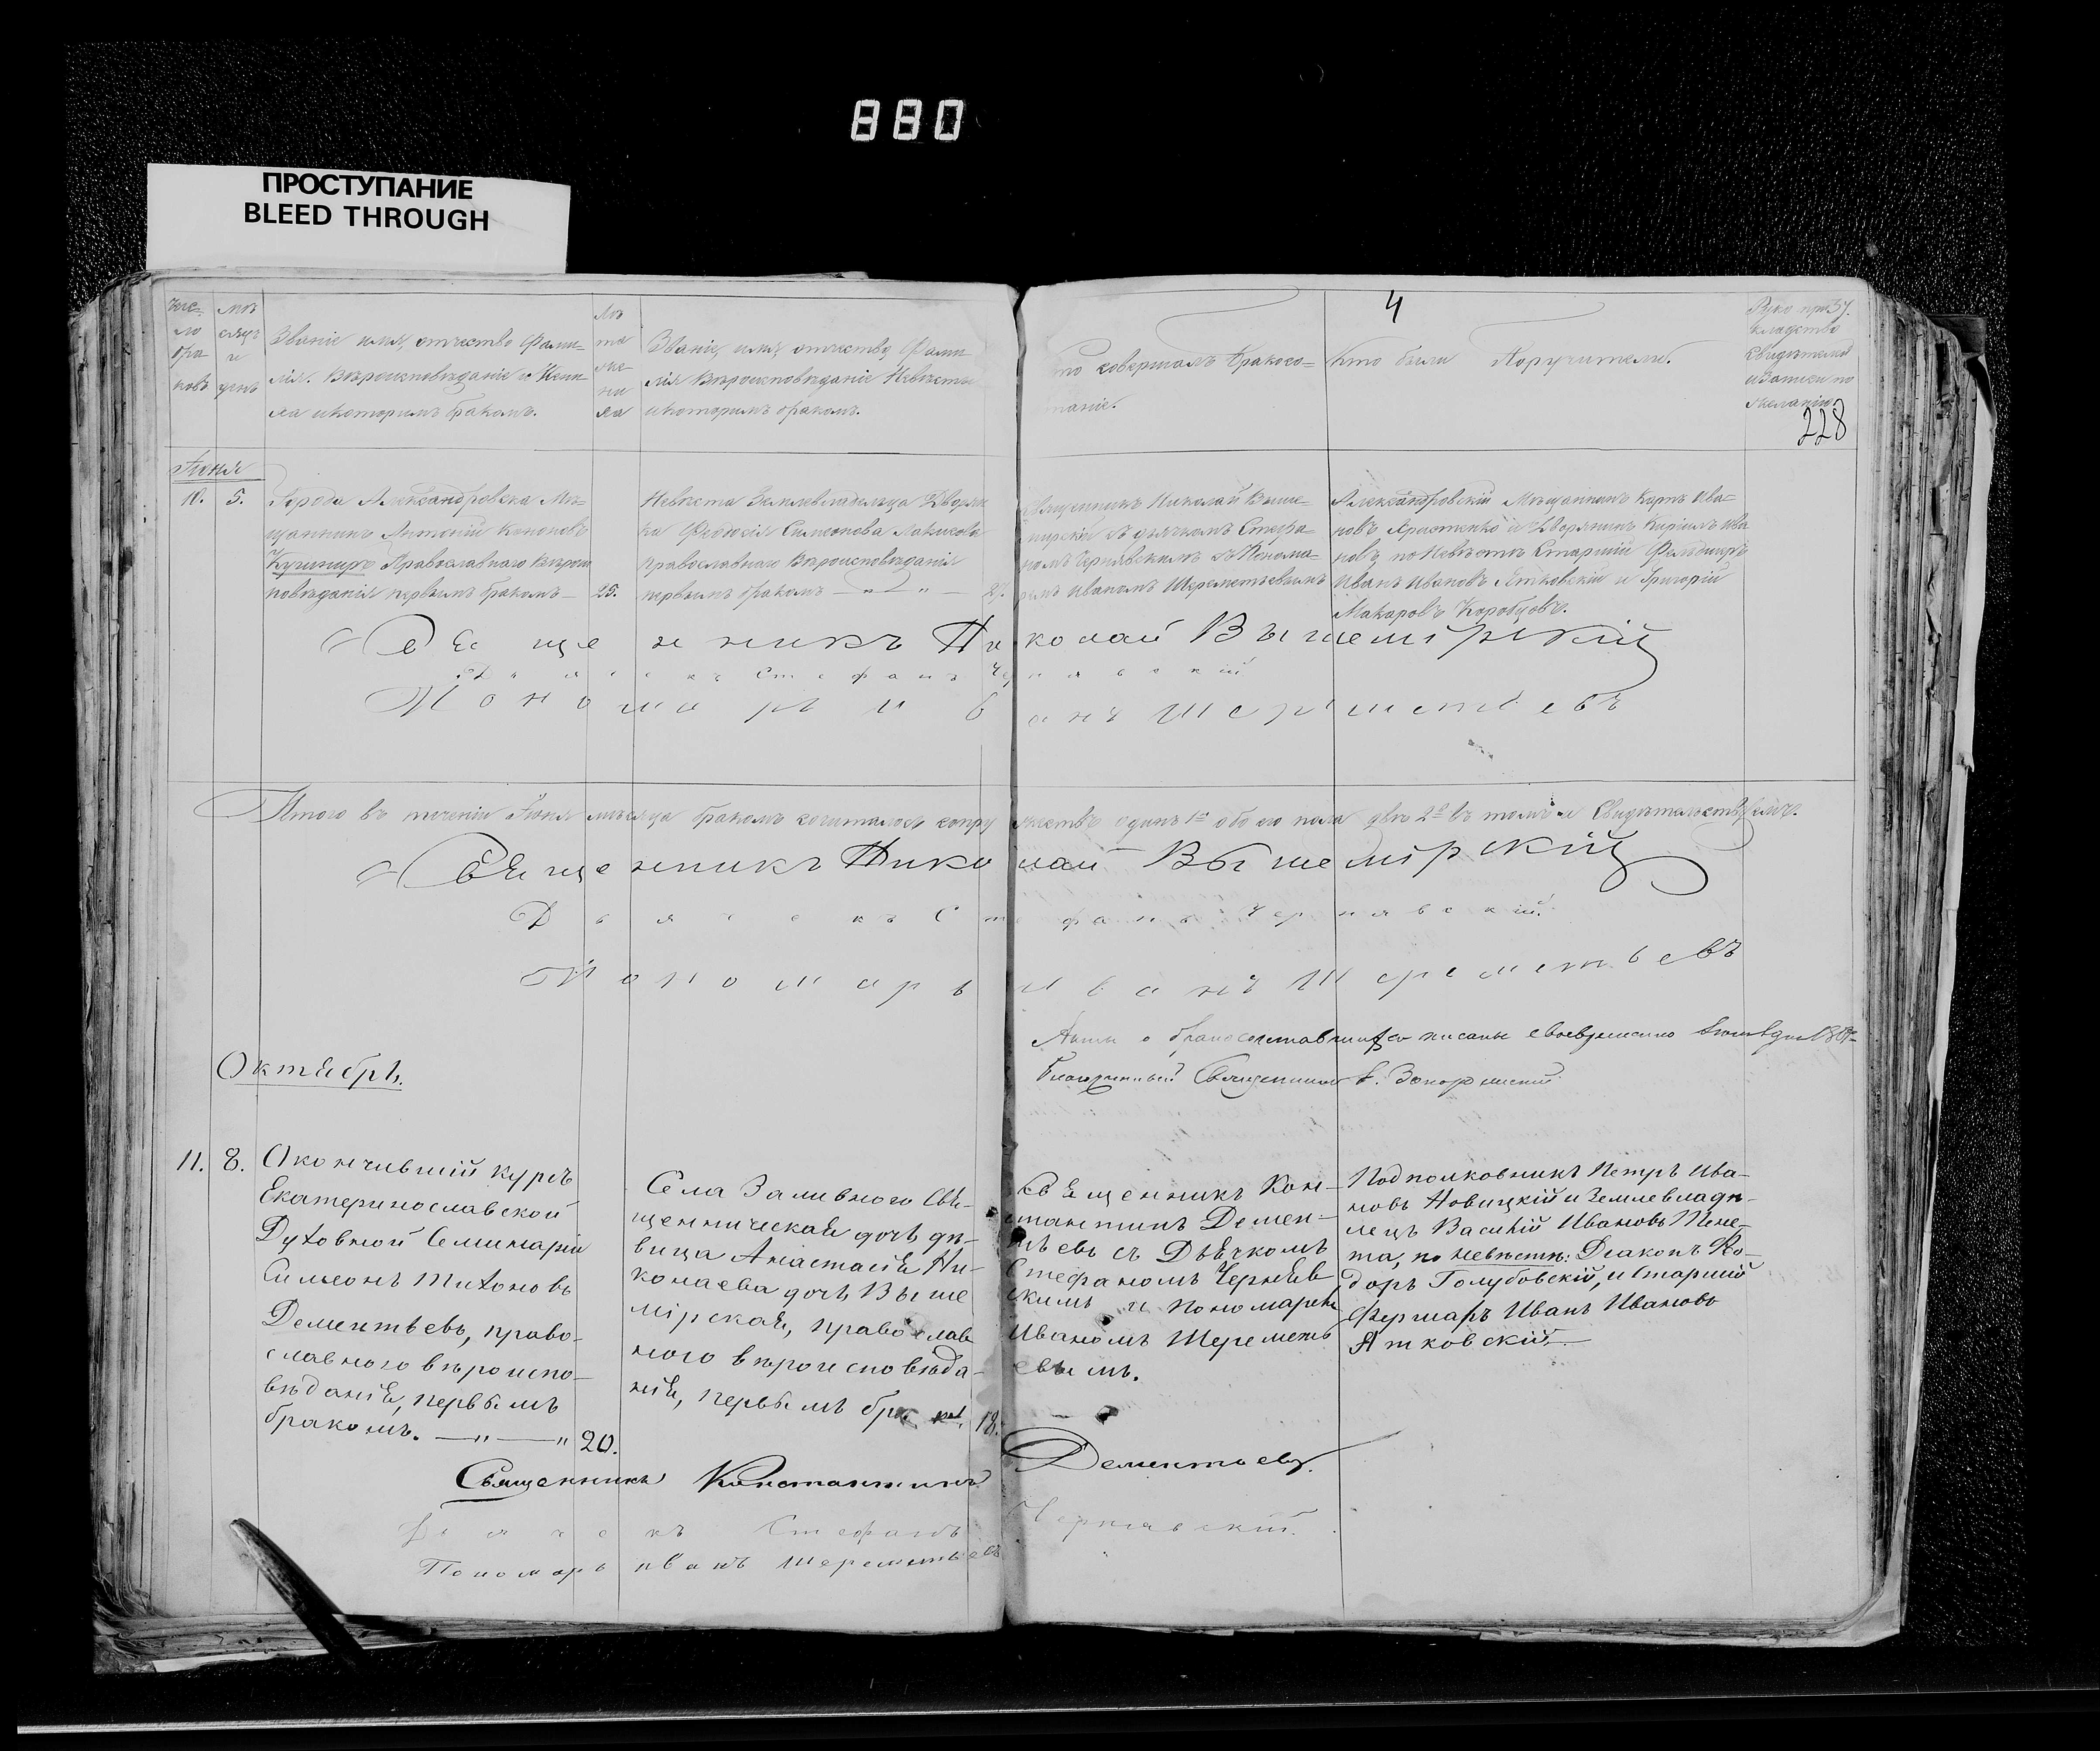 880
ПРОСТУПАНИЕ
BLEED THROUGH
4
Чис-
ло
бра-
ковъ
Мѣ
сяцъ
и
день
Званіе имя, отчество Фами-
лія. Вѣроисповѣданіе Жени-
ха и которимъ бракомъ.
Лѣ
та
же-
ни
ха
Званіе, имя, отчество, Фами
лія Вѣроисповѣданіе Невѣсты
и которимъ бракомъ.
то совершалъ бракосо-
таніе.
Кто были Поручители.
Свидѣтелей
и Записи по
желанію.
228
Іюня
10.
5.
Города Александровска Мѣ-
щанинъ Антоній Кононовъ
Кучугуръ Православнаго Вѣроис
повѣданія первымъ бракомъ —
25.
Невѣста Землевладельца Дворян
ка Симеонова
православнаго Вѣроисповѣданія
первымъ бракомъ — " —
Священникъ Николай Выше-
мирскій съ дьячкомъ Стефа-
номъ Чернявскимъ и Понома-
ремъ Иваномъ Шереметьевымъ
Александровскій Мѣщанинъ Ива-
новъ и Дворянинъ Кирилъ Ива
новъ, по Невѣстѣ Старшій Фельдшеръ
Иванъ Ивановъ Ятковскій и Григорій
Макаровъ Коробцовъ.
Священникъ Николай Вышемірскій
Дьячокъ Стефанъ Чернявскій
Пономарь Иванъ Шереметьевъ
Итого въ теченіи Іюня мѣсяца бракомъ сочиталось супружествъ одинъ 1нъ обоего пола двѣ 2ѣ въ томъ и Свидѣтельствуемъ.
Священникъ Николай Вышемірскій
Дьячокъ Стефанъ Чернявскій.
Пономарь Иванъ Шереметьевъ
Акты о бракосочетавшихся писаны своевременно
Благочинный Священникъ Запорожскій
Октябрь.
11.
8.
Окончившій курсъ
Екатеринославской
Духовной Семинаріи
Симеонъ Тихоновъ
Дементьевъ, право-
славного вѣроиспо-
вѣданія, первымъ
бракомъ. — " — "
20.
Села Заливного Свя-
щенническая дочь дѣ-
вица Анастасія Ни-
колаева дочь Выше
мірская, православ
ного вѣроисповѣда-
нія, первымъ брак
18.
Священникъ Кон-
стантинъ Демен-
тьевъ съ Дьячкомъ
Стефаномъ Черняв
скимъ и Пономаремъ
Иваномъ Шереметь
евымъ.
Подполковникъ Петръ Ива-
новъ Новицкій и Землевладѣ-
лецъ Василій Ивановъ
та, по невѣстѣ: Діаконъ Ѳо-
доръ Голубовскій, и Старшій
Фершаръ Иванъ Ивановъ
Ятковскій.
Священникъ Константинъ Дементьевъ.
Дьячокъ Стефанъ Чернявскій.
Пономарь Иванъ Шереметьевъ